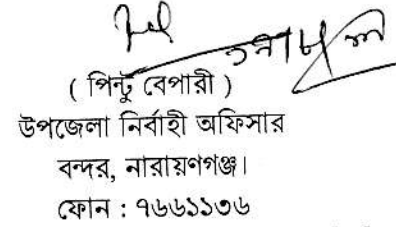 ( পিন্টু বেপারী )
উপজেলা নির্বাহী অফিসার
বন্দর, নারায়ণগঞ্জ।
ফোন : ৭৬৬১১৩৬